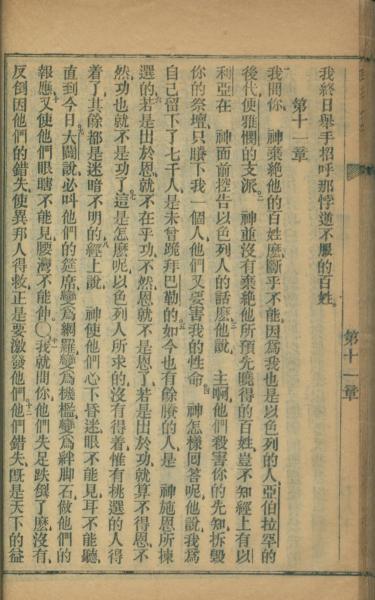 我終日舉手招呼那悖逆不服的百姓。
第十一章
我問你　神棄絕他的百姓麽、斷乎不能、因爲我也是以色列的人、亞伯拉罕的
後代、使雅憫的支派。二　神並沒有棄絕他所預先曉得的百姓、豈不知經上有以
利亞在　神面前控告以色列人的話麽、他說、三　主啊、他們殺害你的先知、拆毀
你的祭壇、只賸下我一個人、他們又要害我的性命。四　神怎樣回答呢、他說、我爲
自己留下了七千人、是未曾跪拜巴勒的。五如今也有餘賸的人、是　神施恩所揀
選的。六若是出於恩、就不在乎功、不然、恩就不是恩了、若是出於功、就算不得恩、不
然、功也就不是功了。七這是怎麽呢、以色列人所求的、沒有得着、惟有挑選的人得
着了、其餘都是迷暗不明的。八經上說、　神使他們心下昏迷、眼不能見、耳不能聽、
直到今日。九大闢說、必叫他們的筵席變爲網羅、變爲機檻、變爲絆脚石、做他們的
報應。十又使他們眼瞎不能見、腰灣不能伸。〇十一我就問你、他們失足跌倒了麽、沒有、
反倒因他們的錯失、使異邦人得救、正是要激發他們。十二他們錯失、旣是天下的益
第十一章